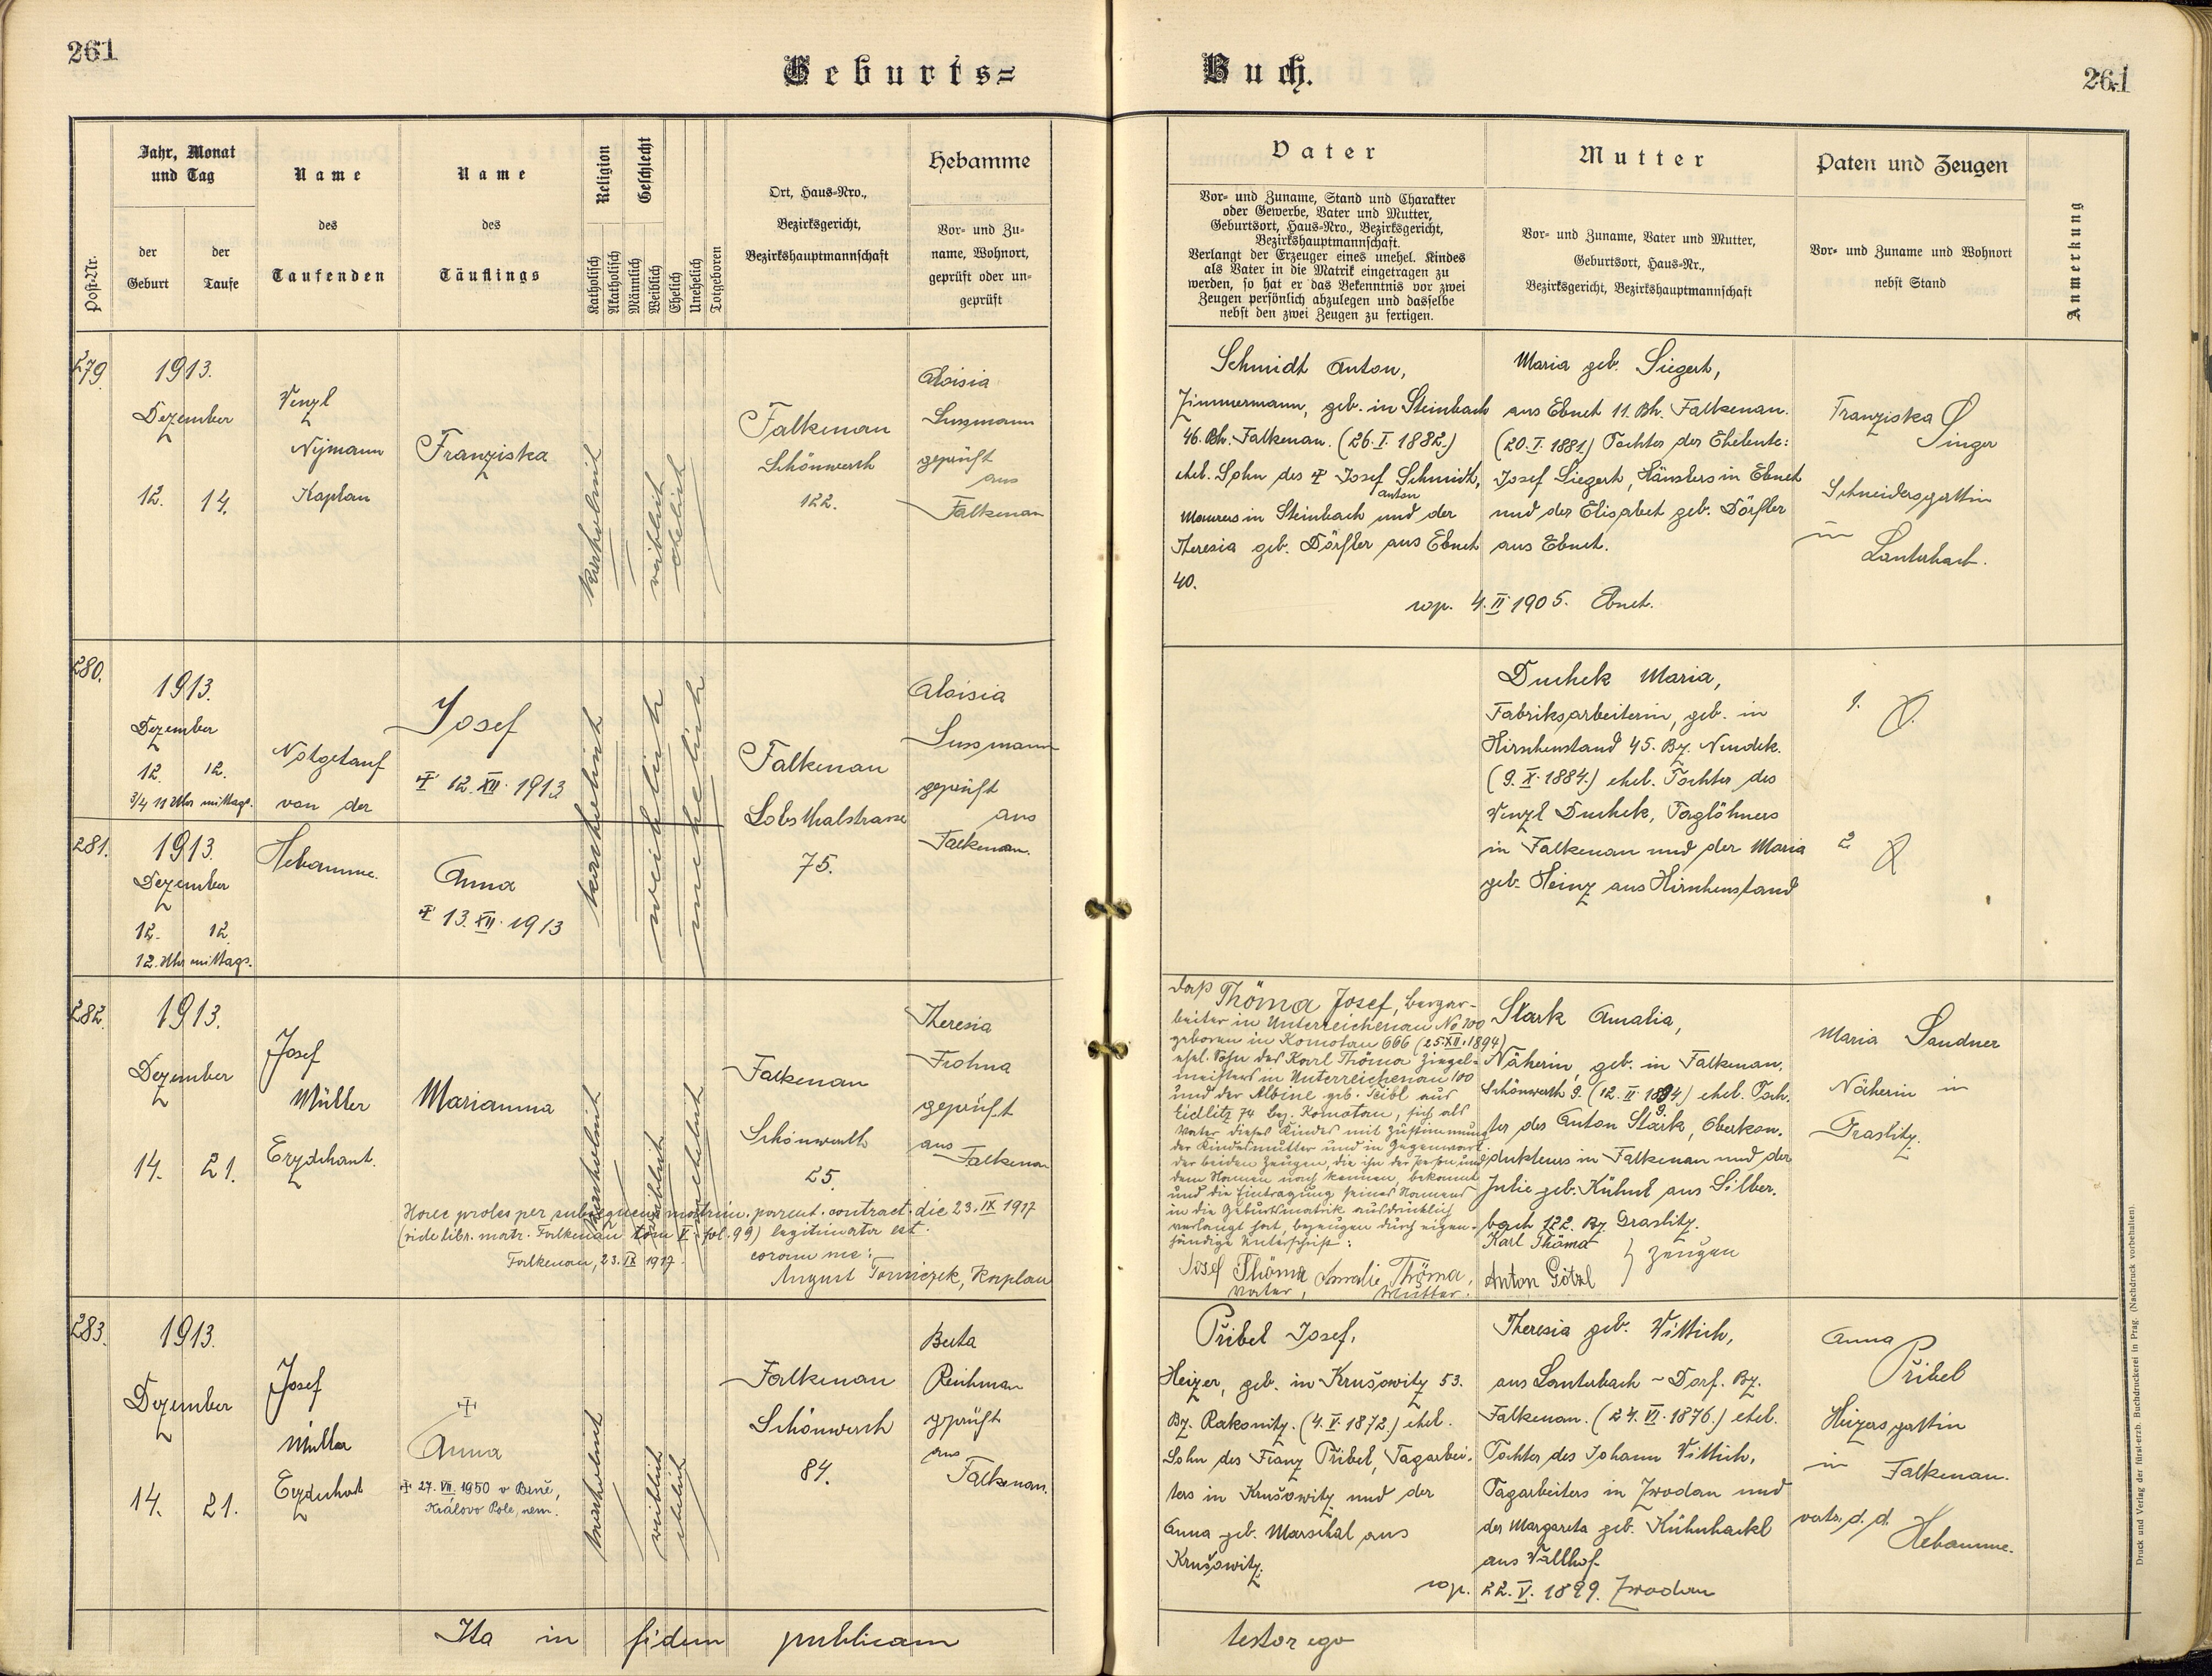 261
Geburts=
Buch.
261
Post-Nr.
Jahr, Monat
und Tag
der
Geburt
der
Taufe
Name
des
Taufenden
Name
des
Täuflings
Religion
Geschlecht
Katholisch
Akatholisch
Männlich
Weiblich
Ehelich
Unehelich
Totgeboren
Ort, Haus-Nro.,
Bezirksgericht,
Bezirkshauptmannschaft
Hebamme
Vor- und Zu-
name, Wohnort,
geprüft oder un-
geprüft
Vater
Vor- und Zuname, Stand und Charakter
oder Gewerbe, Vater und Mutter,
Geburtsort, Haus-Nro., Bezirksgericht,
Bezirkshauptmannschaft.
Verlangt der Erzeuger eines unehel. Kindes
als Vater in die Matrik eingetragen zu
werden, so hat er das Bekenntnis vor zwei
Zeugen persönlich abzulegen und dasselbe
nebst den zwei Zeugen zu fertigen.
Mutter
Vor- und Zuname, Vater und Mutter,
Geburtsort, Haus-Nr.,
Bezirksgericht, Bezirkshauptmannschaft
Paten und Zeugen
Vor- und Zuname und Wohnort
nebst Stand
Anmerkung
279.
1913.
Dezember
12. 14.
Wenzl
Nijmann
Kaplan
Franziska
katholisch
weiblich
ehelich
Falkenau
Schönwerth
122.
Aloisia
Sussmann
geprüft
aus
Falkenau
Schmidt Anton,
Zimmermann, geb. in Steinbach
46. Bh. Falkenau. (26. I. 1882.)
ehel. Sohn des ✝ Josef Schmidt,
Anton
Maurers in Steinbach und der
Theresia geb. Dörfler aus Ebnet
40.
Maria geb. Siegert,
aus Ebnet 11. Bh. Falkenau.
(20. I. 1881.) Tochter der Eheleute:
Josef Siegert, Häuslers in Ebnet
und der Elisabet geb. Dörfler
aus Ebnet.
cop. 4. II. 1905. Ebnet.
Franziska Singer
Schneidersgattin
in
Lauterbach.
280.
1913.
Dezember
12. 12.
3/4 11 Uhr mittags.
Notgetauf
von der
Hebamme.
Josef
✝ 12. XII. 1913
281.
1913.
Dezember
12. 12.
12. Uhr mittags.
Anna
✝ 13. XII. 1913
katholisch
weiblich
unehelich
Falkenau
Lobsthalstrasse
75.
Aloisia
Sussmann
geprüft
aus
Falkenau.
Duchek Maria,
Fabriksarbeiterin, geb. in
Hirschenstand 45. Bz. Neudek.
(9. X. 1884.) ehel. Tochter des
Wenzl Duchek, Taglöhners
in Falkenau und der Maria
geb. Heinz aus Hirschenstand
1.
2.
282.
1913.
Dezember
14. 21.
Josef
Müller
Erzdechant.
Marianna
katholisch
weiblich
unehelich
Falkenau
Schönwerth
25.
Theresia
Frohna
geprüft
aus
Falkenau
Haec proles per subsequens matrim. parent. contract. die 23. IX 1917
(vide libr. matr. Falkenau tom V. fol. 99) legitimata est.
Falkenau, 23. IX 1917. coram me:
August Tomiczek, Kaplan
Daß Thöma Josef, Bergar-
beiter in Unterreichenau No 100
geboren in Komotau 666 (25. XII. 1894)
ehel. Sohn des Karl Thöma Ziegel-
meisters in Unterreichenau 100
und der Albine geb. Seibl aus
Eidlitz 74 Bez. Komotau, sich als
Vater dieses Kindes mit Zustimmung
der Kindesmutter und in Gegenwart
der beiden Zeugen, die ihn der Person und
dem Namen nach kennen, bekannt
und die Eintragung seines Namens
in die Geburtsmatrik ausdrücklich
verlangt hat, bezeugen durch eigen-
händige Unterschrift:
Josef Thöma Amalie Thöma,
Vater, Mutter.
Stark Amalia,
Näherin, geb. in Falkenau,
Schönwerth 9. (12. II. 1894) ehel. Toch-
9.
ter des Anton Stark, Oberkon-
dukteurs in Falkenau und der
Julie geb. Kühnl aus Silber-
bach 122. Bz. Graslitz.
Karl Thöma
Anton Götzl
} Zeugen
Maria Sandner
Näherin in
Graslitz.
283.
1913.
Dezember
14. 21.
Josef
Müller
Erzdechant
✝
Anna
✝ 27. VII. 1950 v Brně,
Královo Pole, nem.
katholisch
weiblich
ehelich
Falkenau
Schönwerth
84.
Berta
Reichman
geprüft
aus
Falkenau.
Přibel Josef,
Heizer, geb. in Krušowitz 53.
Bz. Rakonitz. (4. V. 1872.) ehel.
Sohn des Franz Přibel, Tagarbei-
ters in Krušowitz und der
Anna geb. Marschal aus
Krušowitz.
Theresia geb. Wittich,
aus Lauterbach - Dorf. Bz.
Falkenau. (24. VI. 1876.) ehel.
Tochter des Johann Wittich,
Tagarbeiters in Zwodau und
der Margareta geb. Kühnhackl
aus Wallhof
cop. 22. V. 1899. Zwodau
Anna
Přibel
Heizersgattin
in Falkenau.
Hebamme.
Ita in fidem publicam
testor ego
Druck und Verlag der fürst-erzb. Buchdruckerei in Prag. (Nachdruck vorbehalten).